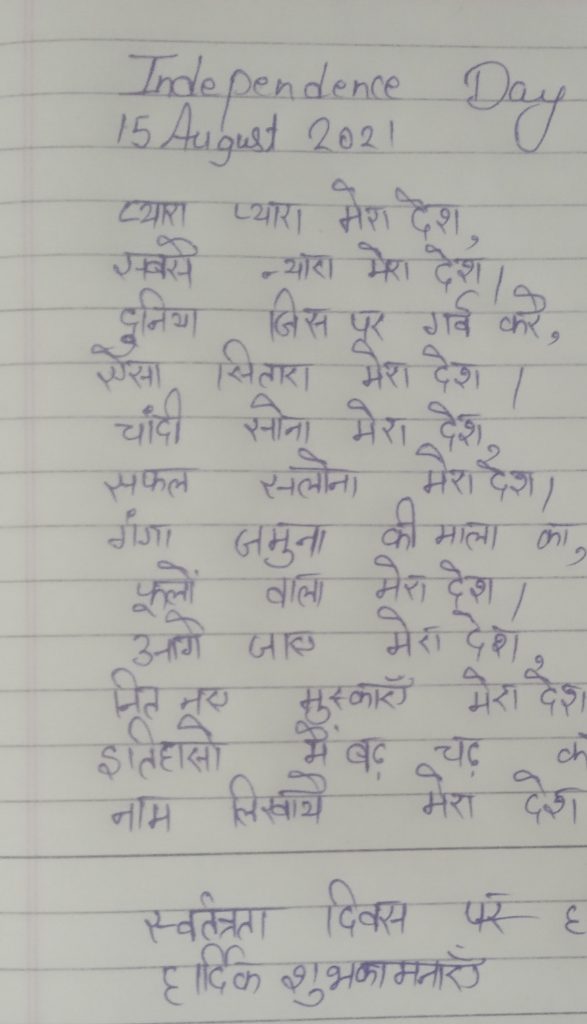 Independence Day
15 August 2021
प्यारा प्यारा मेरा देश,
सबसे न्यारा मेरा देश।
दुनिया जिस पर गर्व करे,
ऐसा सितारा मेरा देश।
चांदी सोना मेरा देश,
सफल सलोना मेरा देश।
गंगा जमुना की माला का,
फूलों वाला मेरा देश।
आगे जाए मेरा देश,
नित नए मुस्काएं मेरा देश
इतिहासो में बढ़ चढ़
नाम लिखायें मेरा देश
स्वतंत्रता दिवस पर
हार्दिक शुभकामनाएँ